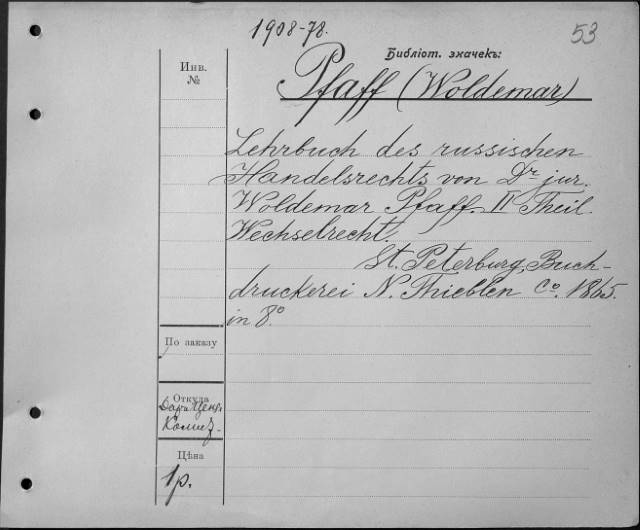 1908-78.
53
Библіот. значекъ:
Инв.
№
Pfaff (Woldemar)
Lehrbuch des russischen
Handelsrechts von Dr jur.
Woldemar Pfaff. II Theil.
Wechselrecht.
St. Peterburg, Buch-
druckerei N. Thieblen Co. 1865.
in 8º
По заказу
Откуда
Дар. Ценз.
Комит.
Цѣна
1р.